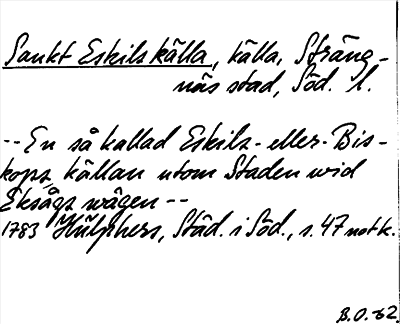 Sankt Eskils källa, källa, Sträng-
näs stad, Söd. l.
-- En så kallad Eskils- eller Bis-
kops källan utom Staden wid
Eksågs wägen --
1783 Hülphers, Städ. i Söd., s. 47 not k.
B.O. -62